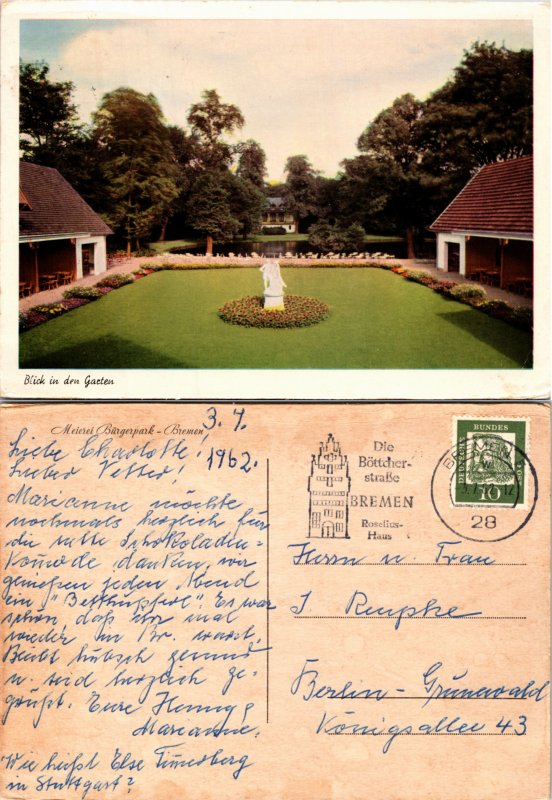 Blick in den Garten
Meierei Bürgerpark - Bremen
3. 7.
1962.
Liebe Charlotte!
Lieber Vetter!
Marianne möchte
nochmals herzlich für
die nette Schokoladen-
danken, wir
genießen jeden Abend
ein "Betthupferl". Es war
schön, daß Ihr mal
wieder in Br. wart.
Bleibt hübsch gesund
u. seid herzlich ge-
grüßt. Eure Henny &
Marianne.
Wie heißt Else
in Stuttgart?
Die
Böttcher-
straße
BREMEN
Roselius-
Haus
BREMEN
28
DEUTSCHE BUNDESPOST
10
Herrn u. Frau
J. Rupke
Berlin - Grunewald
Königsallee 43